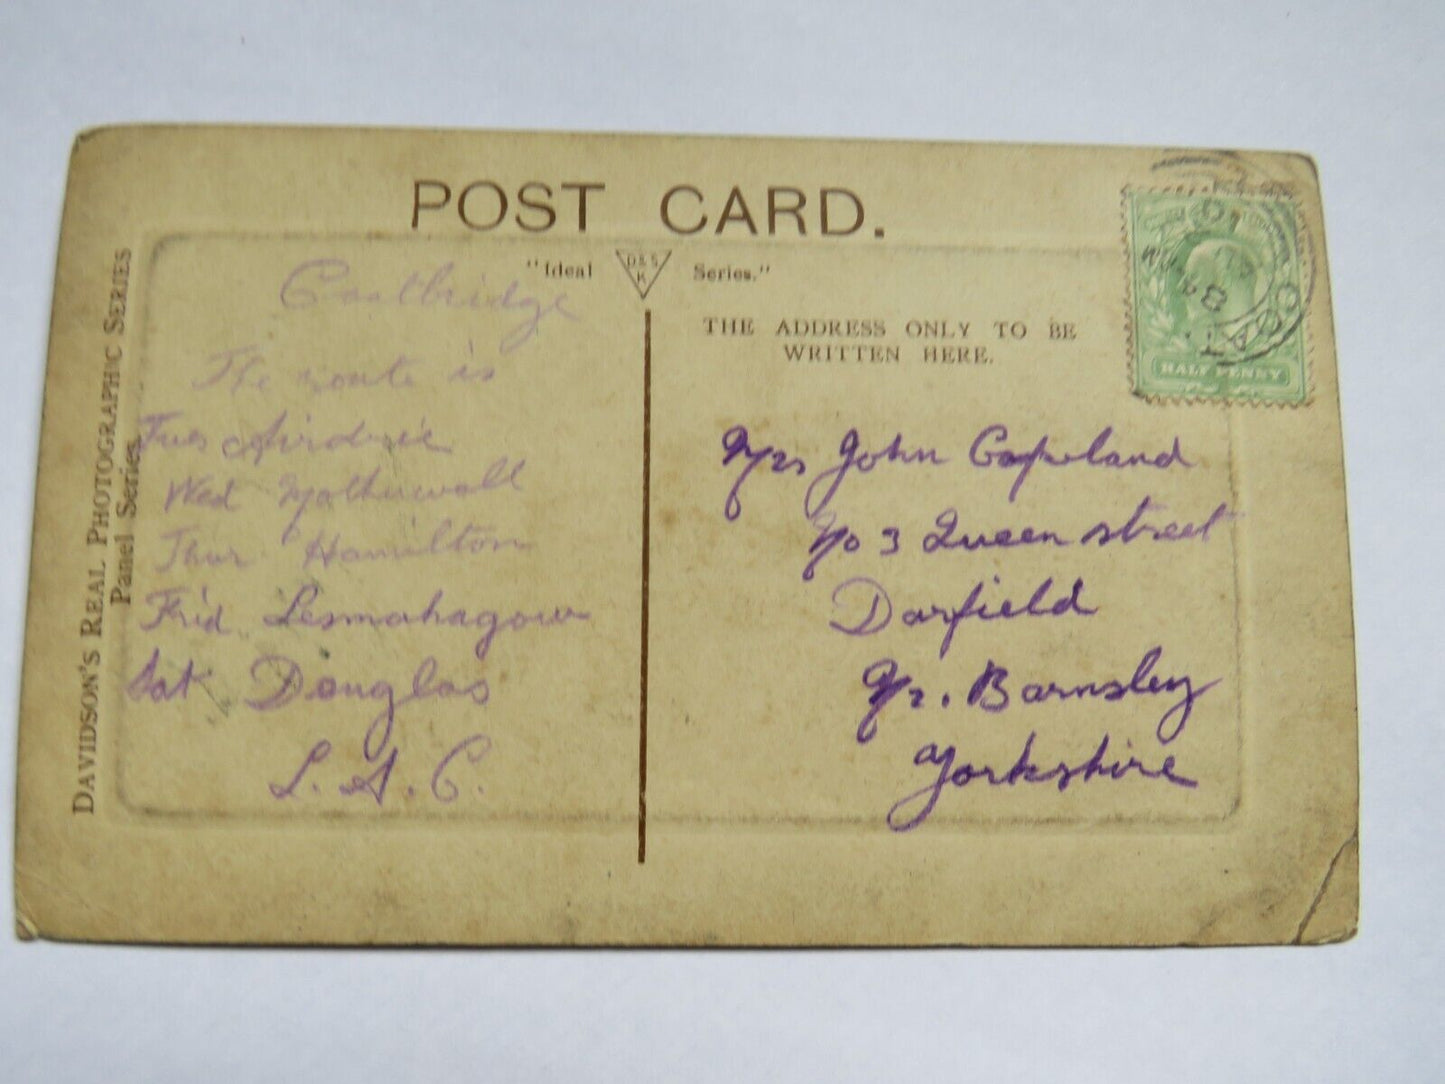 POST CARD.
"Ideal D & S K Series."
THE ADDRESS ONLY TO BE
WRITTEN HERE.
HALF PENNY
DAVIDSON'S REAL PHOTOGRAPHIC SERIES
Panel Series.
Coatbridge
The route is
Tues Airdrie
Wed Motherwell
Thur Hamilton
Frid. Lesmahagow
Sat Douglas
L. A. C.
Mrs John Copeland
No 3 Queen street
Darfield
Nr. Barnsley
Yorkshire